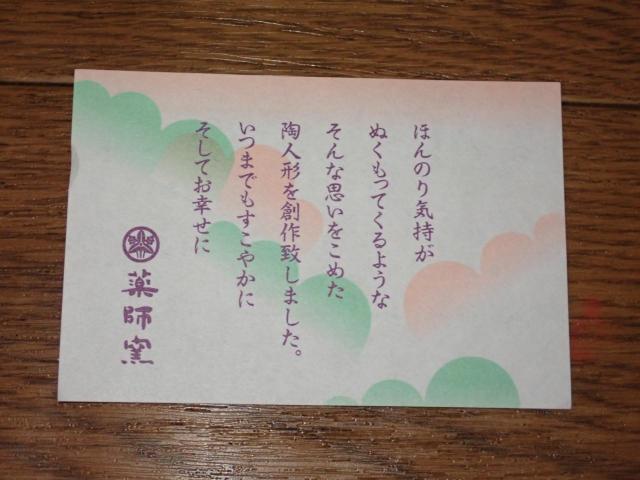 ほんのり気持が
ぬくもってくるような
そんな思いをこめた
陶人形を創作致しました。
いつまでもすこやかに
そしてお幸せに
薬師窯